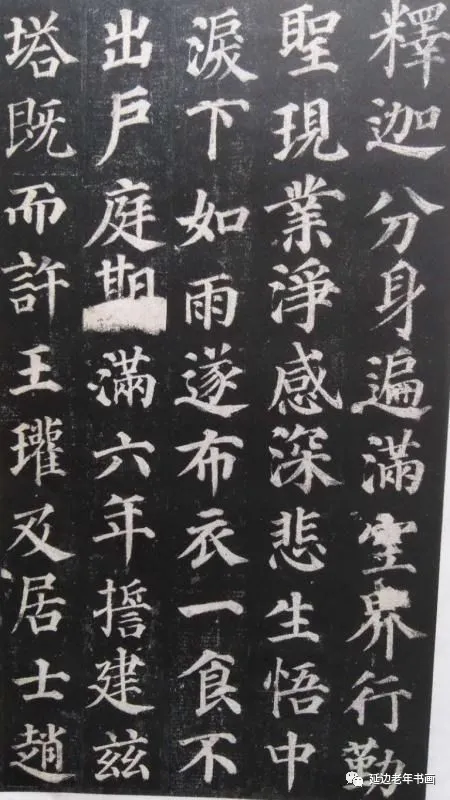 釋迦分身遍滿空界行勤
聖現業淨感深悲生悟中
淚下如雨遂布衣一食不
出戶庭期滿六年誓建茲
塔既而許王瓘及居士趙
延边老年书画